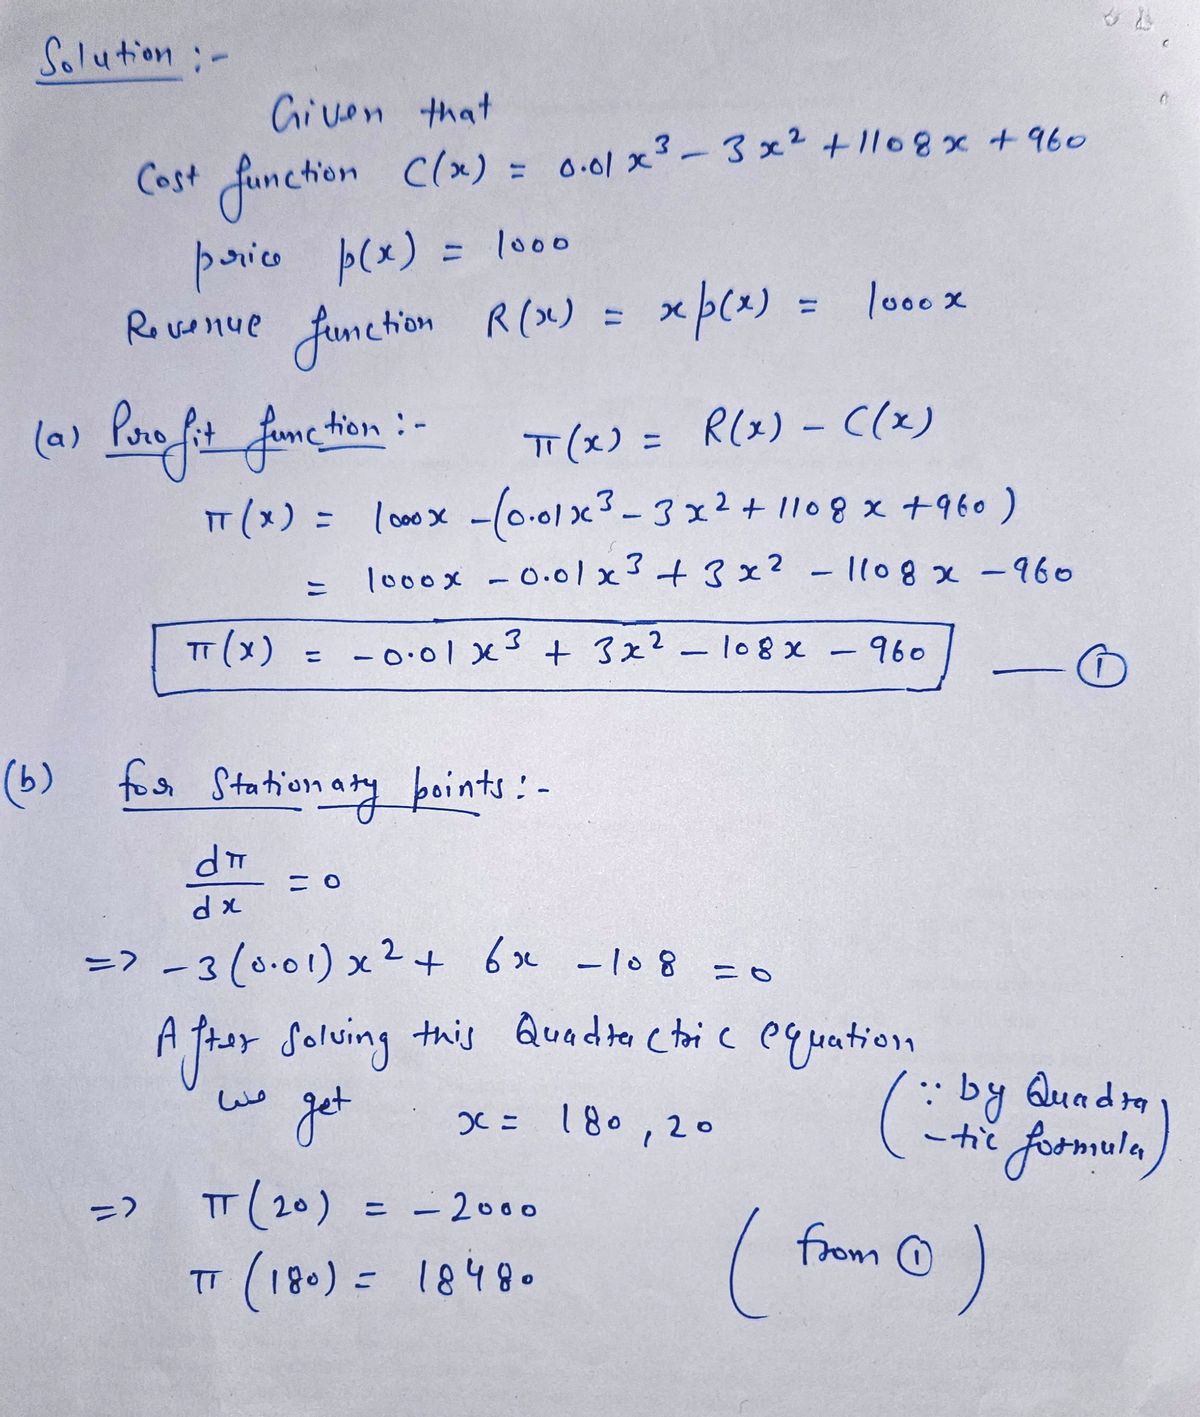 Solution :-
Given that
Cost function C(x) = 0.01 x³ - 3 x² + 1108 x + 960
price p(x) = 1000
Revenue function R(x) = x p(x) = 1000 x
(a) Profit function :- π(x) = R(x) - C(x)
π(x) = 1000x - (0.01x³ - 3x² + 1108 x + 960)
= 1000x - 0.01 x³ + 3x² - 1108 x - 960
π(x) = -0.01 x³ + 3x² - 108x - 960 — ①
(b) for Stationary points :-
dπ/dx = 0
=> -3(0.01) x² + 6x - 108 = 0
After solving this Quadractric equation
we get x = 180, 20 (∵ by Quadra
-tic formula)
=> π(20) = -2000
π(180) = 18480 (from ①)